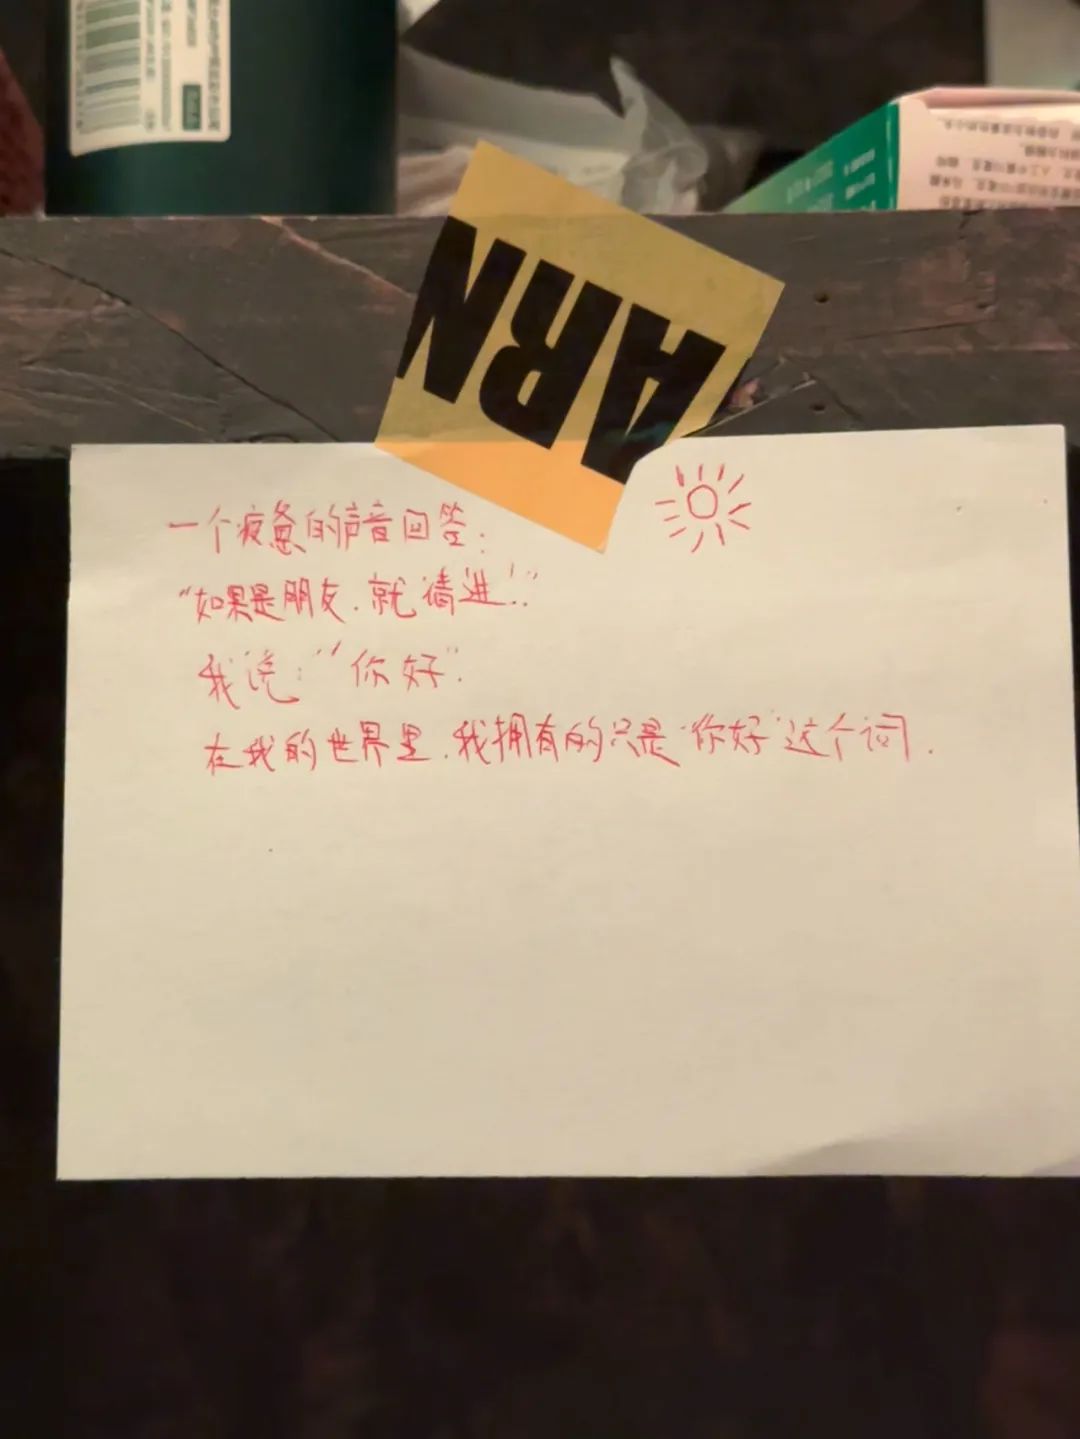 ARN
一个疲惫的声音回答:
“如果是朋友.就请进!”
我说:“你好”.
在我的世界里.我拥有的只是“你好”这个词.